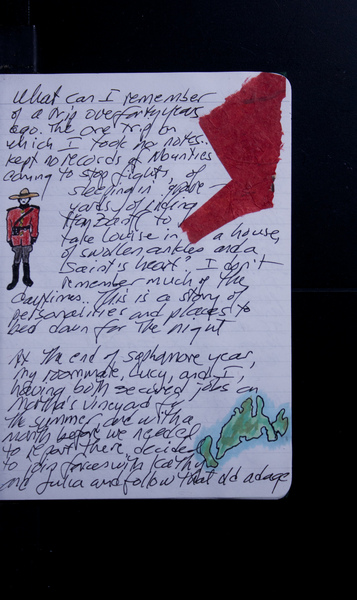 What can I remember
of a trip over forty years
ago. The one trip on
which I took no notes..
kept no records of Mounties
coming to stop fights, of
sleeping in grave
yards, of riding
to
Lake Louise in a house,
of swollen ankles and a
Saint's heart? I don't
remember much of the
daytimes.. This is a story of
personalities and places to
bed down for the night
At the end of sophomore year,
my roommate, Lucy, and I,
having both secured jobs on
Martha's Vineyard for
the summer, and with a
month before we needed
to report there, decided
to join forces with Kathy
and Julia and follow that old adage